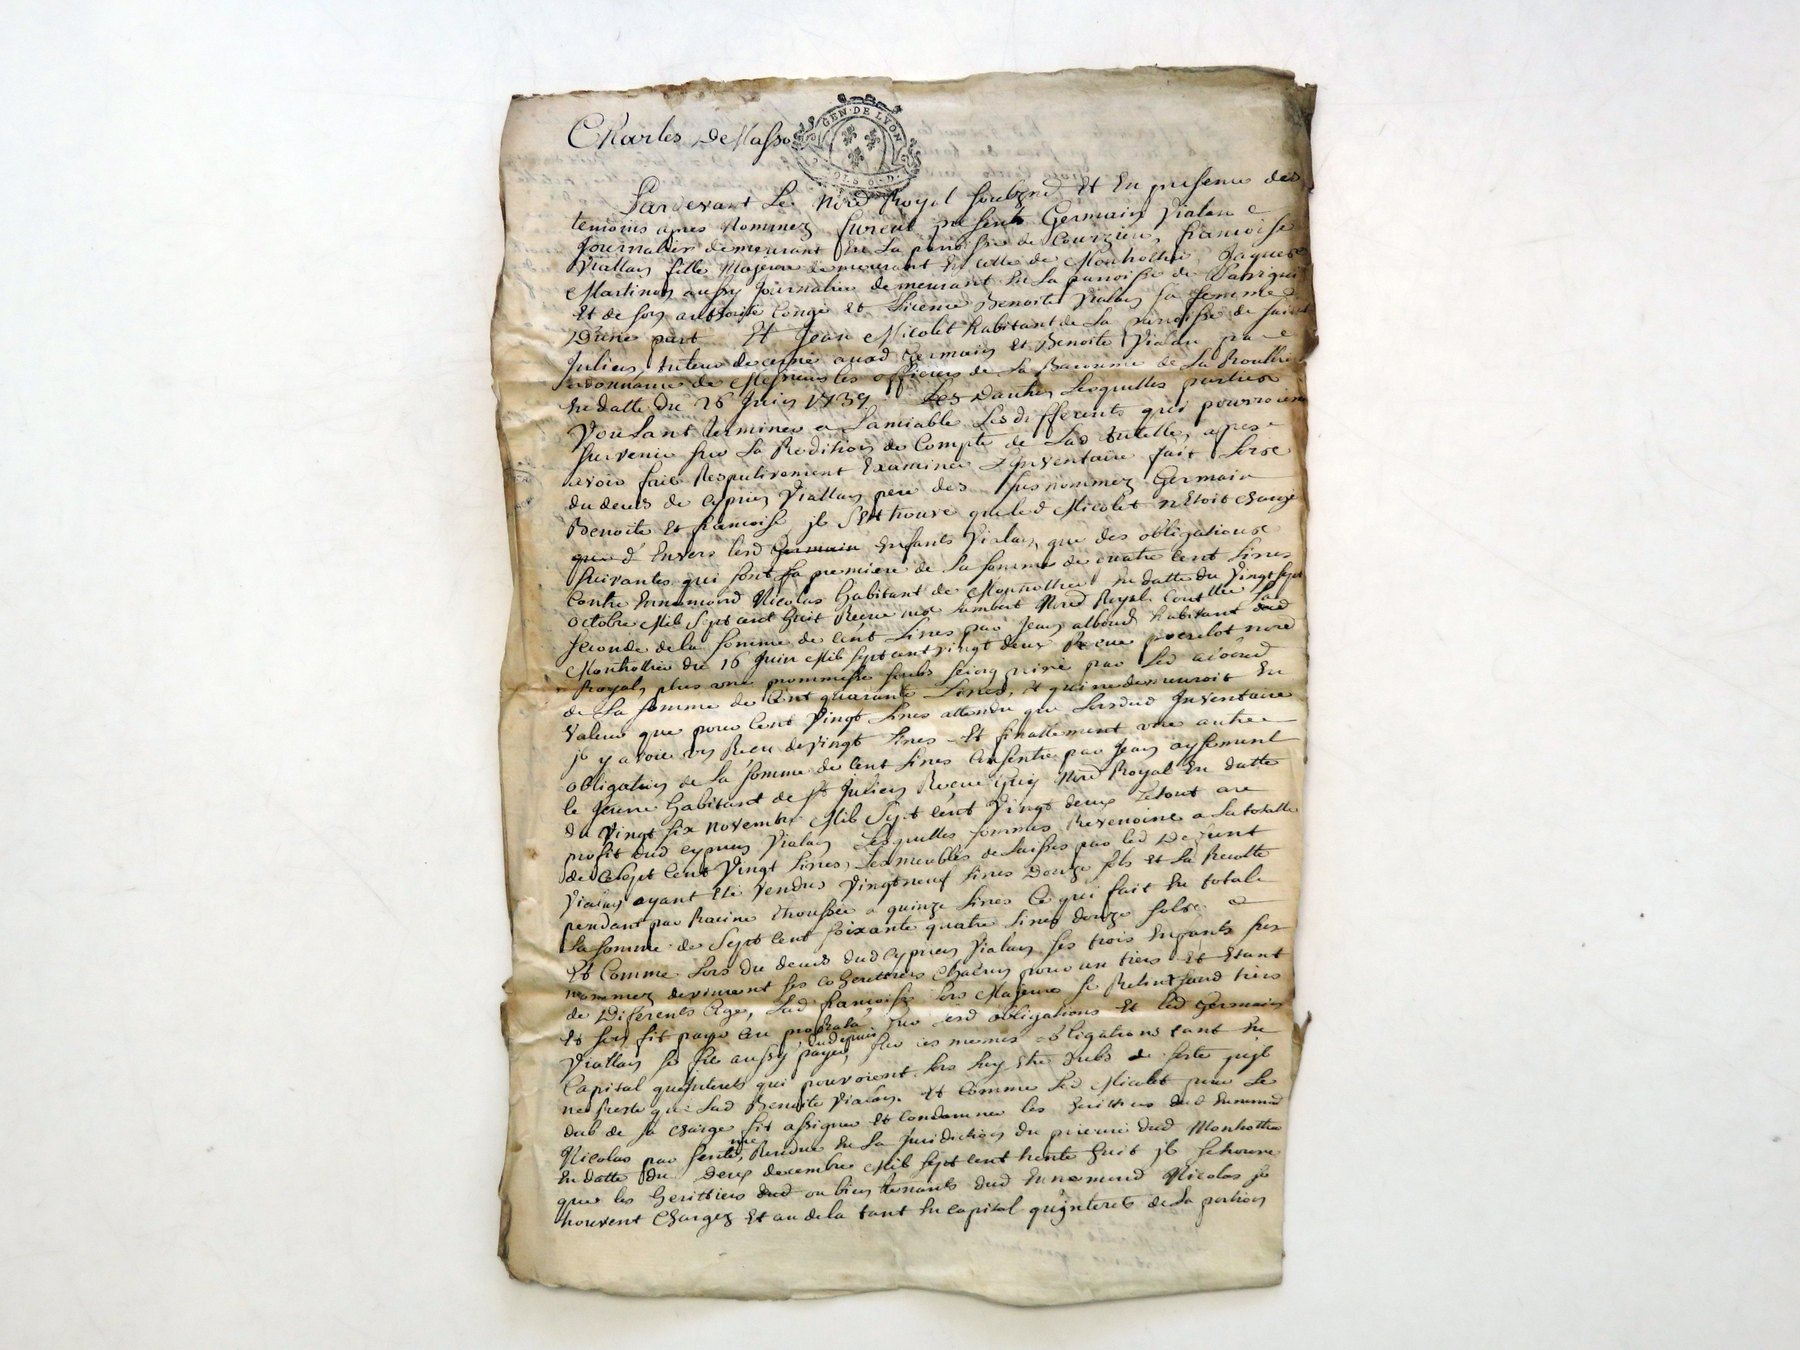 Charles De Masso
GEN·DE LYON
SOLS
Pardevant Le Nore Royal soubzne et En presence des
temoins apres Nommez furent present Germain Vialan
Journalier demeurant En La paroisse de Courzieu, francoise
Viallan fille Majeure demeurant En celle de Monrottier Jaques
Martinon aussy Journalier demeurant En La paroisse de
Et de son authorité Congé et Licence Benoite Vialan sa femme
D'une part Et Jean Micolet habitant de La paroisse de saint
Julien, tuteur decerné auxd Germain et Benoite Vialan par
ordonnance de Messieurs les officiers de La Baronnie de La
En datte du 26 Juin 1739 Les D'autre, Lesquelles parties
Voulant terminer a L'amiable Les differents qui pourroient
survenir sur La Reddition de Compte de Lad tutelle, apres
avoir fait Respectivement Examiner L'Inventaire fait Lors
du deces de Cyprien Viallan pere des susnommez Germain
Benoite Et francoise, il s'est trouvé que led Micolet n'Etoit chargé
Envers lesd Germain Enfants Vialan que des obligations
suivantes qui sont La premiere de La somme de quatre Cent Livres
Contre Ennemond Nicolas habitant de Monrottier En datte du Vingt sept
octobre Mil sept cent huit Receue Lambert Nore Royal La
seconde de la somme de Cent Livres par Jean habitant dud
Monrottier du 16 Juin Mil sept cent vingt deux Receue nore
Royal, plus une promesse soubs seing privé par led
de La somme de Cent quarante Livres, et qui ne demeuroit En
Valeur que pour Cent Vingt Livres attendu que Lorsdud Inventaire
il y avoit un Receu de vingt Livres Et finallement une autre
obligation de La somme de Cent Livres Consentie par Jean
le Jeune habitant de St Julien Receue Nore Royal En datte
du Vingt six novembre Mil Sept Cent Vingt deux Letout au
profit dud Cyprien Vialan Lesquelles sommes Revenoint a La totalle
de Sept Cent Vingt Livres, Les meubles delaissés par led Defunt
Vialan ayant Eté Vendus Vingt neuf Livres Douze sols et La Recolte
pendant par Racine a quinze Livres Ce qui fait En total
La somme de Sept Cent soixante quatre Livres douze sols
Et Comme Lors du deces dud Cyprien Vialan ses trois Enfants sus
nommez devinrent ses coheritiers Chacun pour un tiers et Etant
de Differents Ages, Lad francoise Lors Majeure se Retint sond tiers
Et s'en fit payer au prorata sur lesd obligations Et led Germain
Viallan se fit aussy payer sur ces memes obligations tant En
Capital qu'Interets qui pouvoient Lors luy Etre dubs de sorte qu'il
ne reste que Lad Benoite Vialan. Et Comme Led Micolet pour Le
dub de sa charge fit assigner et Condamner les heritiers dud Ennemond
Nicolas par sentence Rendue En La Juridiction du prieuré dud Monrottier
En datte du deux decembre Mil sept cent trente huit il se trouve
que les heritiers dud ou bien tenants dud Ennemond Nicolas se
trouvent Chargez Et au dela tant En Capital qu'Interets de La portion